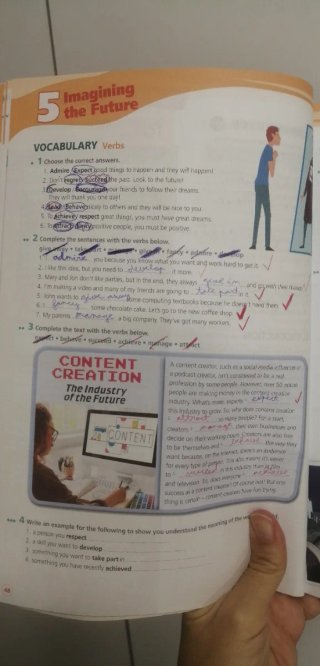 5 Imagining
the Future
VOCABULARY Verbs
1 Choose the correct answers.
1. Admire / Expect good things to happen and they will happen!
2. Don't regret / succeed the past. Look to the future!
3. Develop / Encourage your friends to follow their dreams.
They will thank you one day!
4. / Behave nicely to others and they will be nice to you.
5. To achieve / respect great things, you must have great dreams.
6. To attract / deny positive people, you must be positive.
2 Complete the sentences with the verbs below.
give away • take • • • fancy • admire •
1. I admire you because you know what you want and work hard to get it.
2. I like this idea, but you need to develop it more.
3. Mary and Jon don't like parties, but in the end, they always give in and go with their friends.
4. I'm making a video and many of my friends are going to take part in it.
5. John wants to give away some computing textbooks because he doesn't need them.
6. I fancy some chocolate cake. Let's go to the new coffee shop.
7. My parents manage a big company. They've got many workers.
3 Complete the text with the verbs below.
expect • behave • succeed • achieve • manage • attract
CONTENT
CREATION
The Industry
of the Future
CONTENT
A content creator, such as a social media influencer or
a podcast creator, isn't considered to be a real
profession by some people. However, over 50 million
people are making money in the content creation
industry. What's more, experts expect
this industry to grow. So why does content creation
attract so many people? For a start,
creators manage their own businesses and
decide on their working hours. Creators are also free
to be themselves and behave the way they
want because, on the internet, there's an audience
for every type of person. It is also easier to
in this industry than in film
and television. So, does everyone
success as a content creator? Of course not! But one
thing is certain – content creators have fun trying.
4 Write an example for the following to show you understand the meaning of the
1. a person you respect
2. a skill you want to develop
3. something you want to take part in
4. something you have recently achieved
48